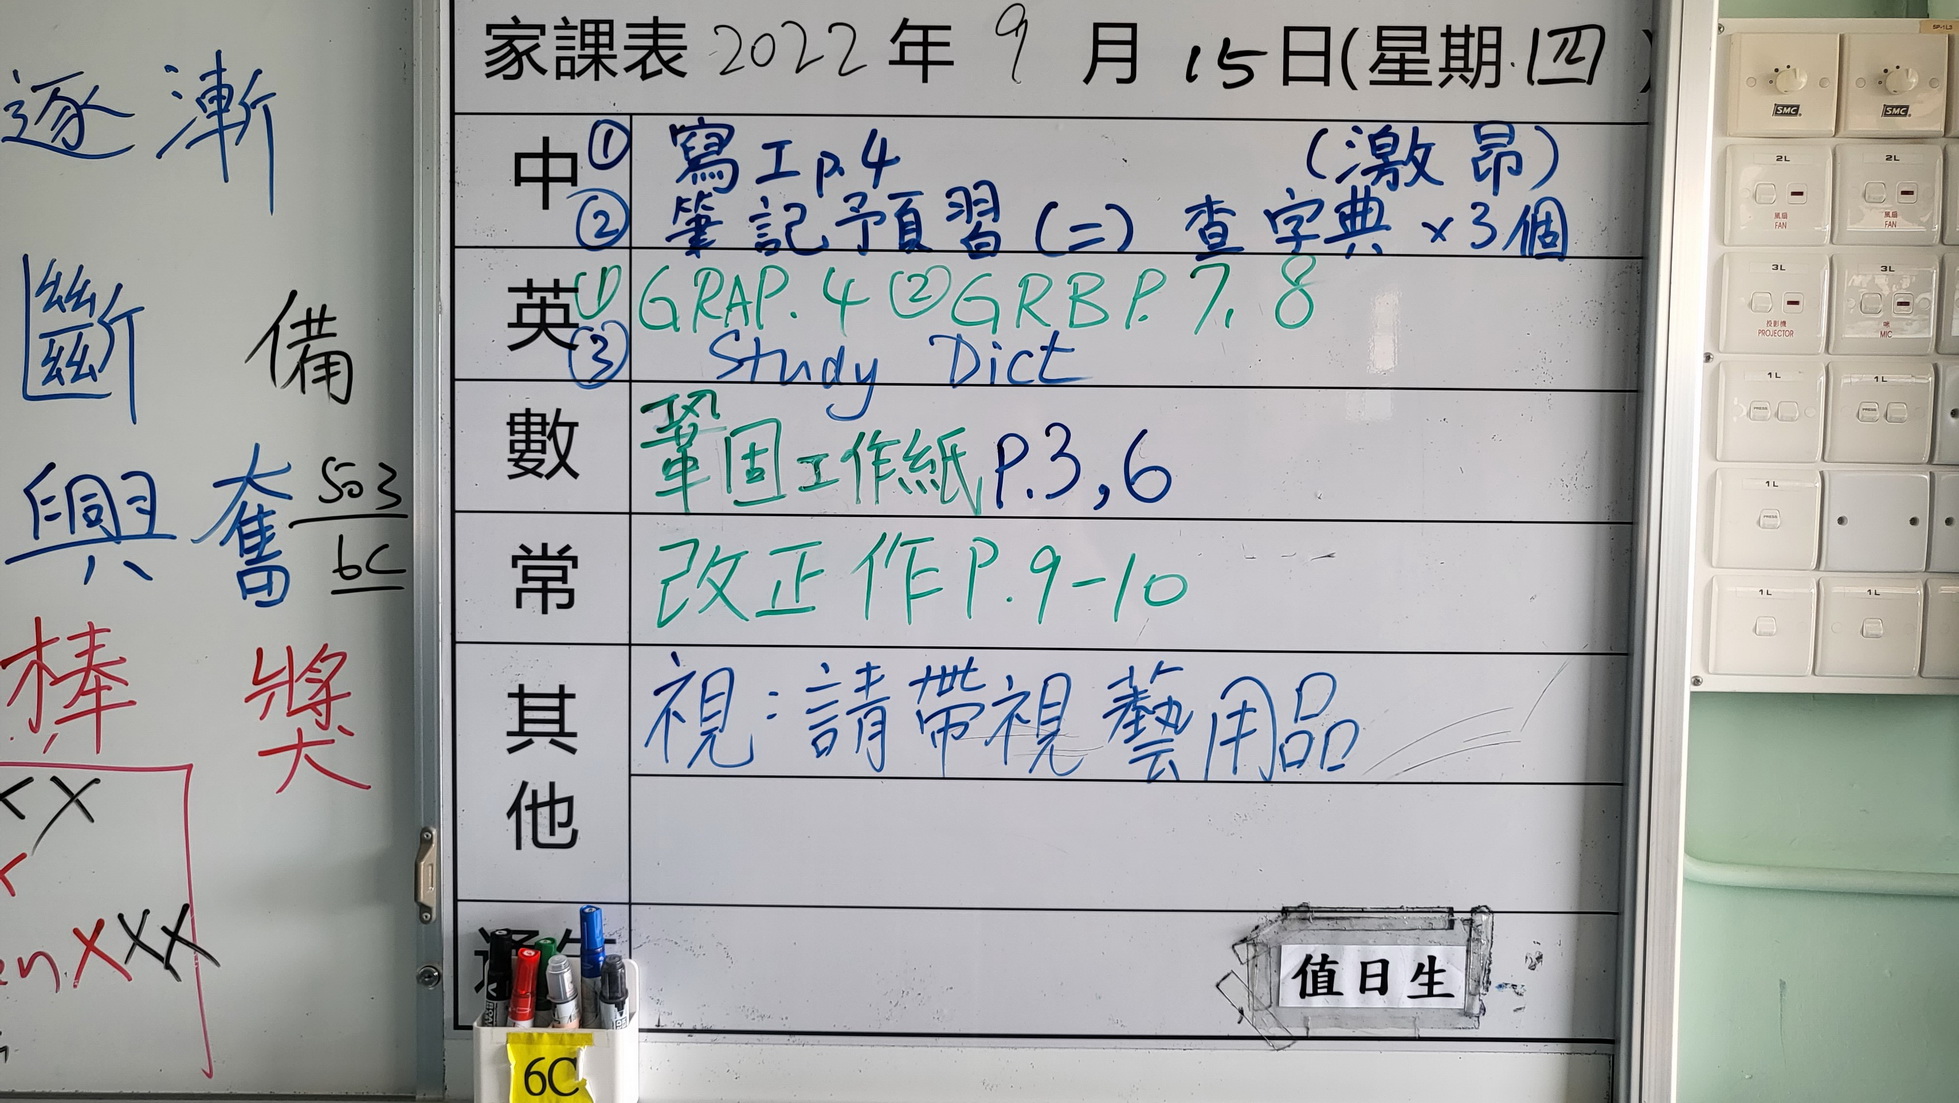 逐漸
斷 備
興奮 503
6C
棒 獎
xxx
家課表 2022年 9月 15日(星期四)
中 ① 寫工p.4 (激昂)
② 筆記預習(二) 查字典×3個
英 ① GRAP.4 ② GRBP.7,8
③ Study Dict
數 鞏固工作紙P.3,6
常 改正作P.9-10
其他 視:請帶視藝用品
值日生
6C
SMC SMC
2L 2L
風扇 FAN 風扇 FAN
3L 3L
投影機 PROJECTOR 咪 MIC
1L 1L
PRESS PRESS
1L
PRESS
1L 1L